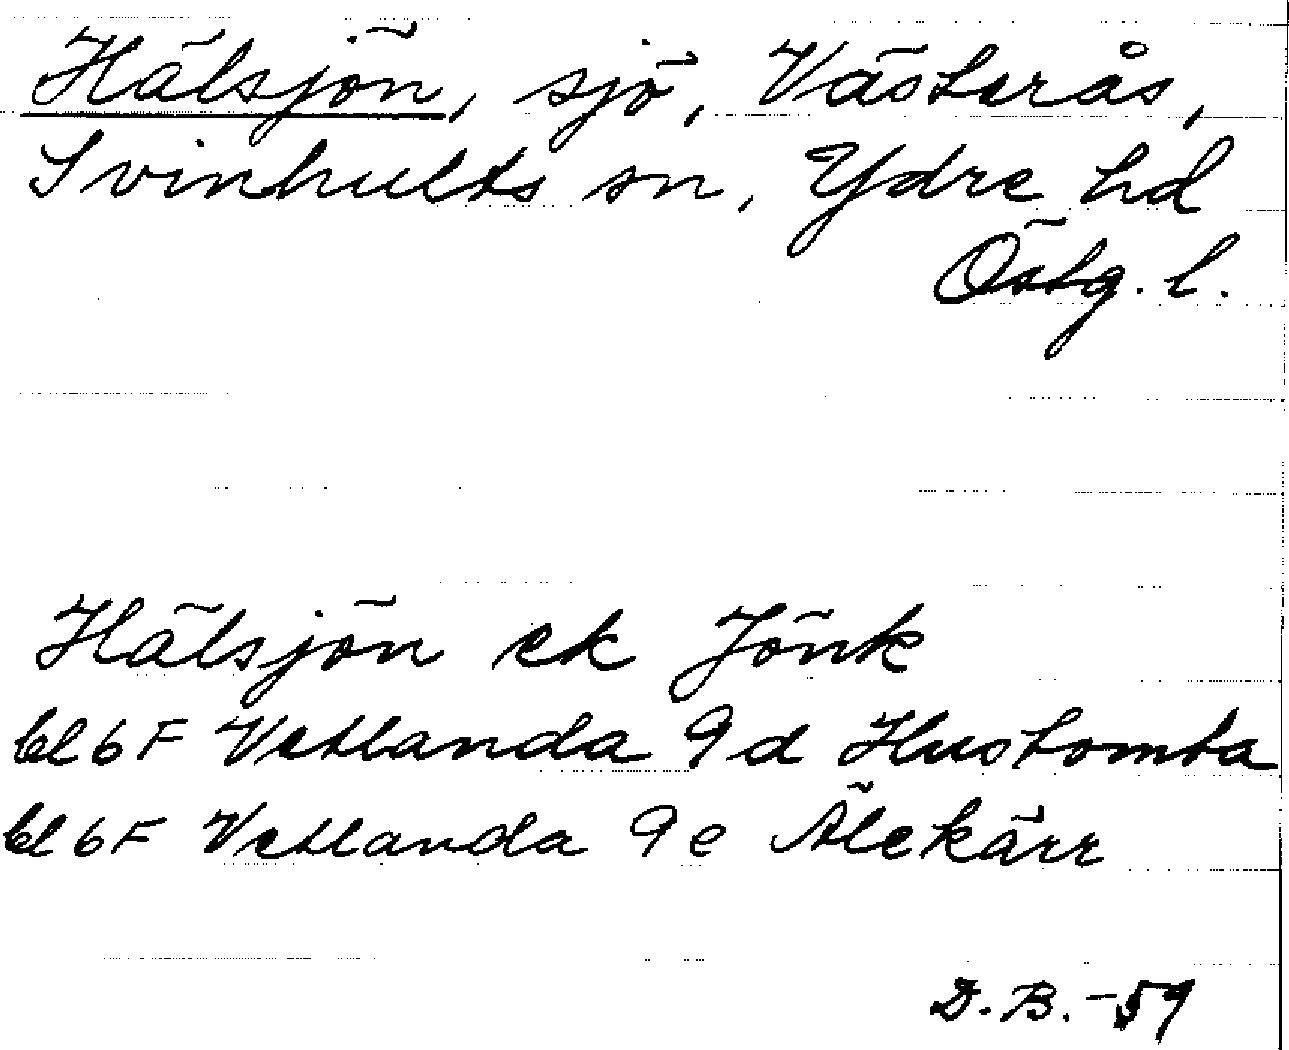 Hälsjön, sjö, Västerås,
Svinhults sn, Ydre hd
Östg. l.
Hälsjön ek Jönk
bl 6F Vetlanda 9d Hustomta
bl 6F Vetlanda 9e Älekärr
D.B. -59